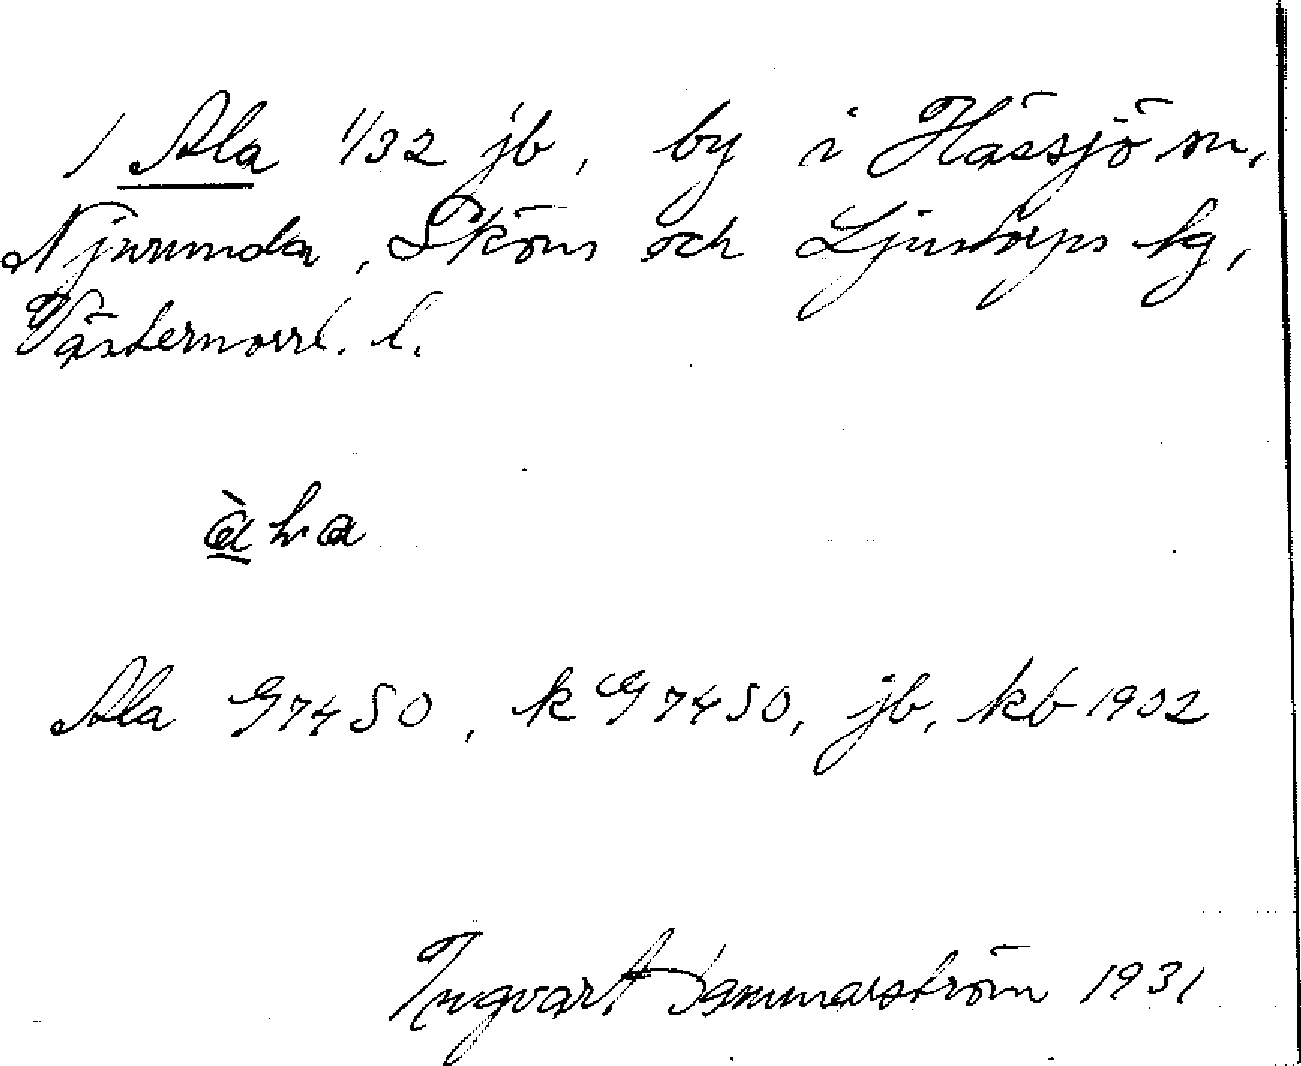 1 Ala 1/32 jb, by i Hässjö sn,
Njurunda, Sköns och Ljustorps tg,
Västernorrl. l.
Ala G7450, k G7450, jb, kb 1902
Ingvart Hammarström 1931